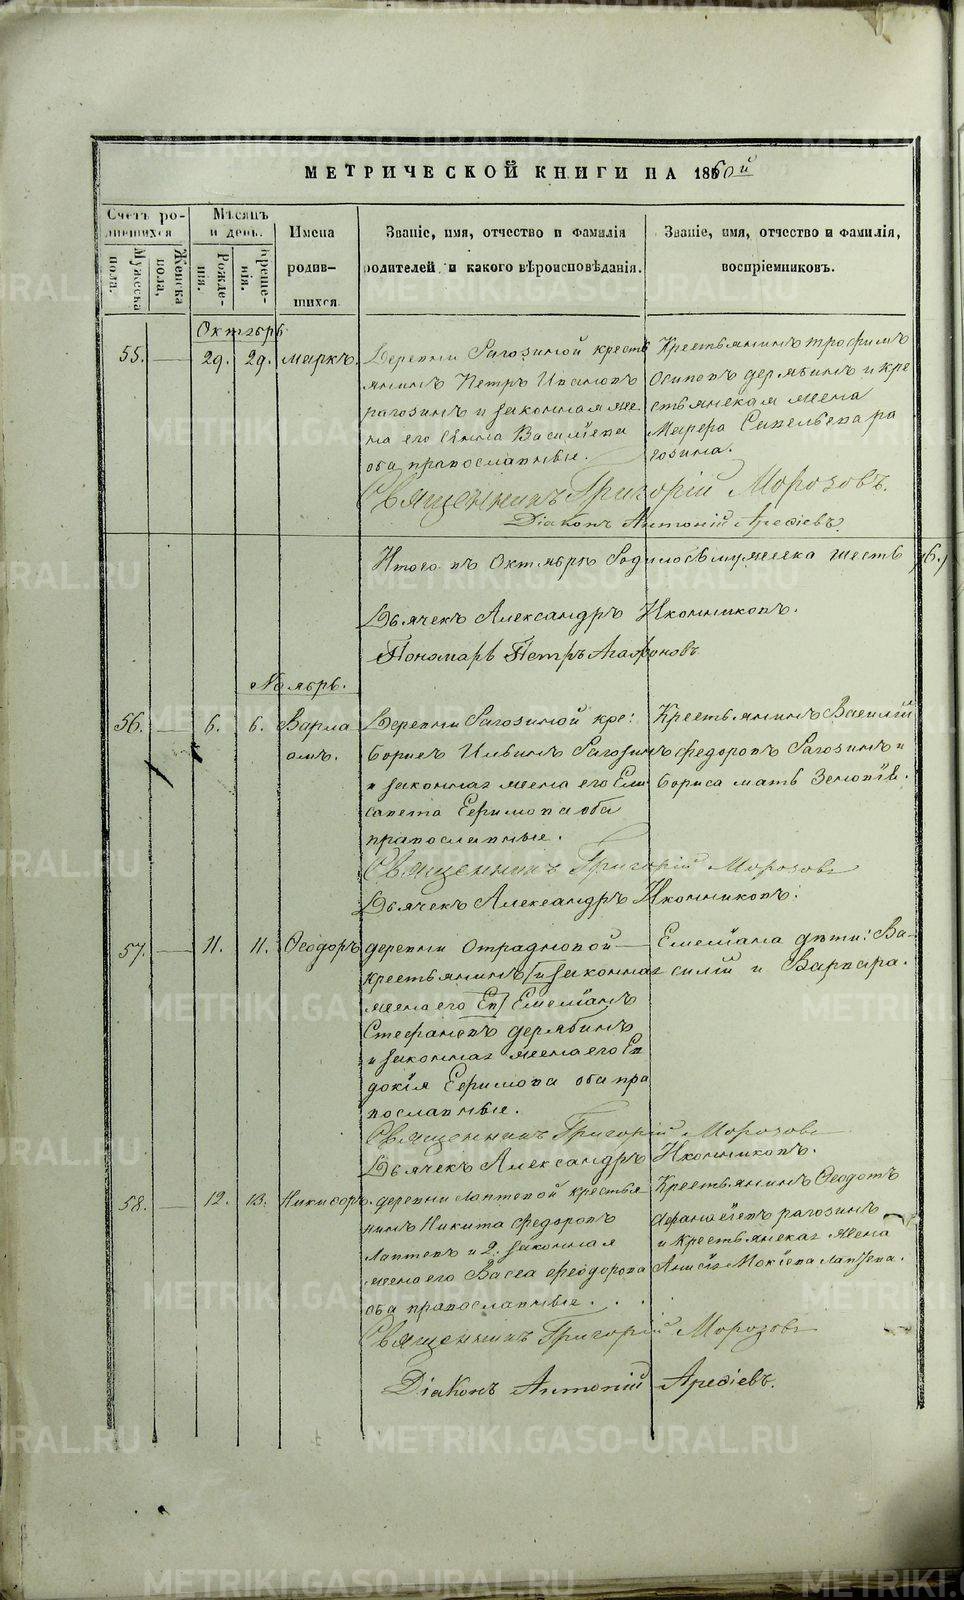 МЕТРИЧЕСКОЙ КНИГИ НА 1860й
Счетъ родившихся
Мѣсяцъ и день.
Имена родившихся
Званіе, имя, отчество и фамилія родителей и какого вѣроисповѣданія.
Званіе, имя, отчество и фамилія, воспріемниковъ.
Мужеска пола.
Женска пола,
Рожденія.
Крещенія.
Октябрь
55. 29. 29. Маркъ. Деревни Рагозиной кресть
янинъ Петръ Ивановъ
рагозинъ и законная же
на его Анна Васильева
оба православные.
Крестьянинъ трофимъ
Осиповъ дерябинъ и кре
стьянская жена
Савельева ра
гозина.
Священникъ Григорій Морозовъ.
Діаконъ Антоній Арефіевъ
Итого въ Октябрѣ Родилось мужеска шесть /6./
Дьячекъ Александръ Иконниковъ.
Пономарь Петръ Агафоновъ
Ноябрь.
56. 6. 6. Варла
амъ.
Деревни Рагозиной кре:
Борисъ Ильинъ Рагозинъ
и законная жена его Ели
савета Ефимова оба
православные.
Крестьянинъ Василій
федоровъ Рагозинъ и
Бориса мать Зеновія.
Священникъ Григорій Морозовъ
Дьячекъ Александръ Иконниковъ.
57. 11. 11. Ѳеодоръ деревни Отрадновой
крестьянинъ [и законная
жена его Ев] Емельянъ
Стефановъ дерябинъ
и законная жена его Ев
докія Ефимова оба пра
вославные.
Емельяна дѣти: Ва-
силій и Варвара.
Священникъ Григорій Морозовъ
Дьячекъ Александръ Иконниковъ.
58. 12. 13. Никифоръ. деревни лаптевой крестья
нинъ Никита федоровъ
лаптевъ и 2. законная
жена его Васса феодорова
оба православные.
Крестьянинъ Ѳеодотъ
Афанасіевъ рагозинъ
и крестьянская жена
Анисія Мокіева лаптева.
Священникъ Григорій Морозовъ
Діаконъ Антоній Арефіевъ.
METRIKI.GASO-URAL.RU